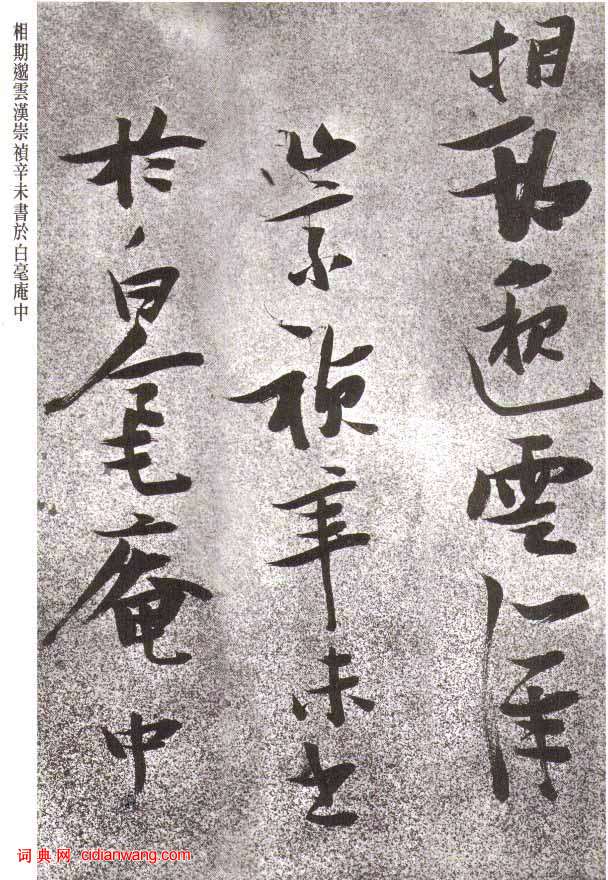 相期邈雲漢
崇禎辛未書
於白毫庵中
相期邈雲漢崇禎辛未書於白毫庵中
词典网 cidianwang.com